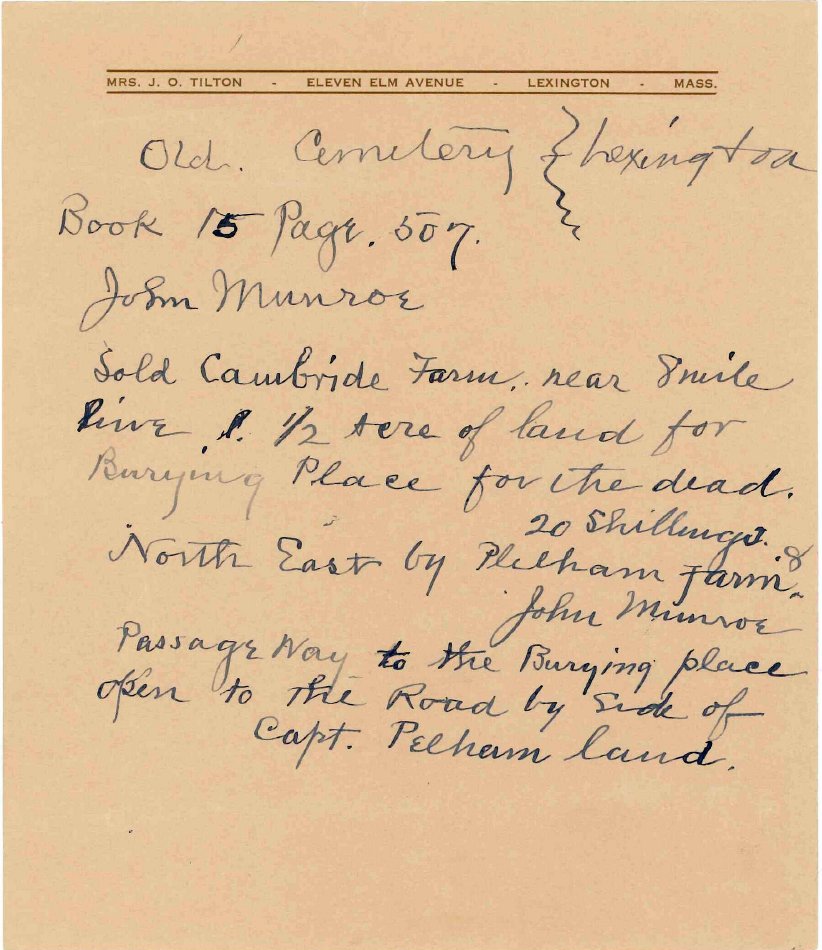 MRS. J. O. TILTON - ELEVEN ELM AVENUE - LEXINGTON - MASS.
Old. Cemetery } Lexington
Book 15 Page. 507.
John Munroe
Sold Cambride Farm. near 8 mile
line 1/2 Acre of land for
Burying Place for the dead.
20 Shillings.
North East by Plelham Farm &
John Munroe
Passage Way to the Burying place
open to the Road by Side of
Capt. Pelham land.